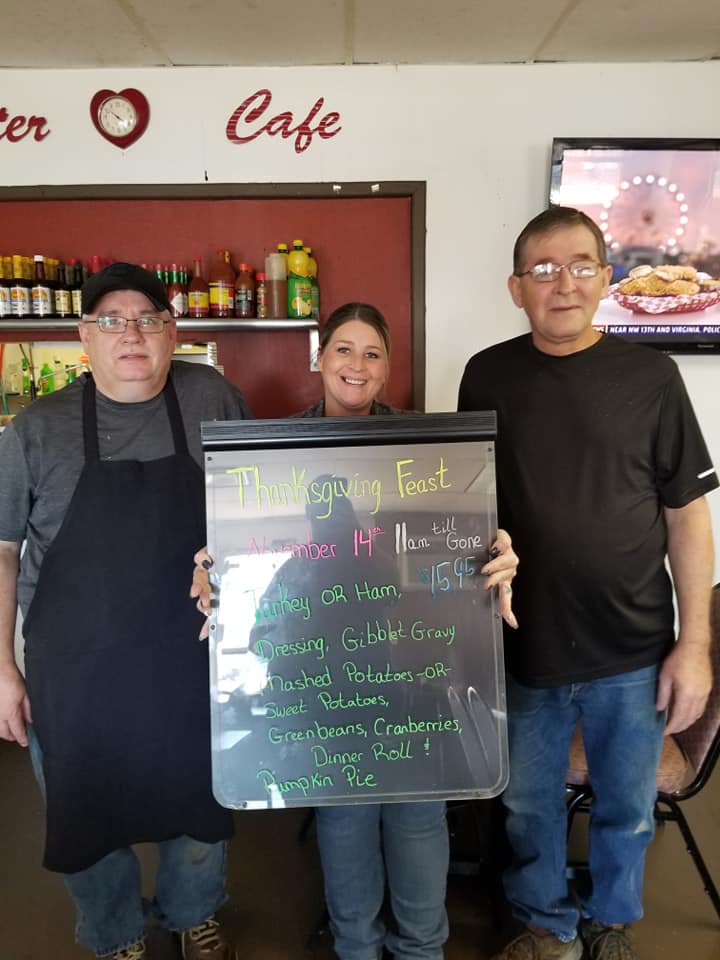 ter Cafe
NEAR NW 13TH AND VIRGINIA. POLIC
Thanksgiving Feast
November 14th 11am till Gone
Turkey OR Ham, $15.95
Dressing, Gibblet Gravy
Mashed Potatoes -OR-
Sweet Potatoes,
Greenbeans, Cranberries,
Dinner Roll &
Pumpkin Pie